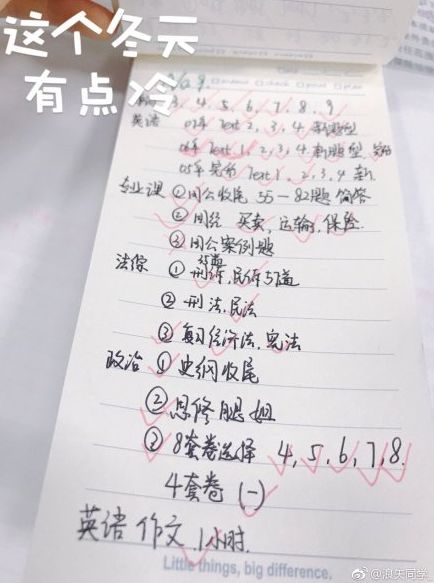 这个冬天
有点冷
3、4、5、6、7、8、9
英语 07年 Text 2, 3, 4 新题型
06年 Text 1, 2, 3, 4 新题型, 完形
05年 完形 Text 1, 2, 3, 4 新
专业课 ①国公收尾 55-82题 简答
②国经 买卖, 运输, 保险
③国公案例题
法综 ① 刑诉, 民诉 57道
② 刑法, 民法
③ 复习经济法, 宪法
政治 ① 史纲收尾
② 思修 腿姐
③ 8套卷选择 4, 5, 6, 7, 8.
4套卷 (一)
英语 作文 1小时.
Little things, big difference.
@浪矢同学